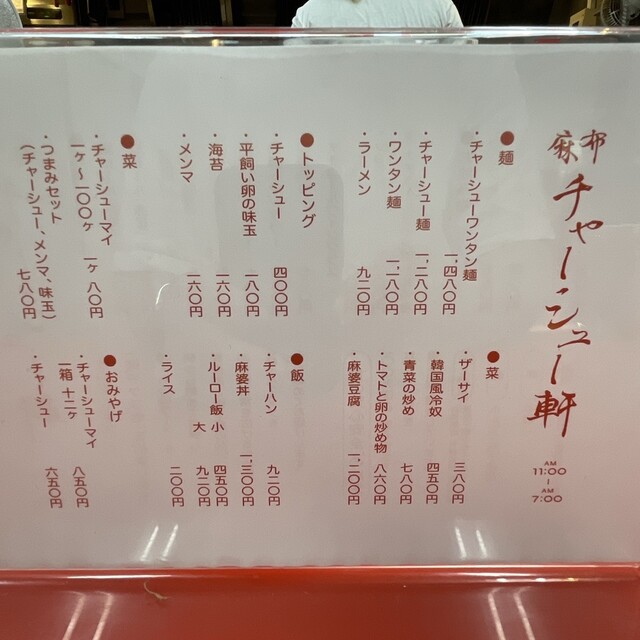 麻布
チャーシュー軒
AM
11:00
|
AM
7:00
●麺
・チャーシューワンタン麺 一、四八〇円
・チャーシュー麺 一、二八〇円
・ワンタン麺 一、一八〇円
・ラーメン 九二〇円
●トッピング
・チャーシュー 四〇〇円
・平飼い卵の味玉 一八〇円
・海苔 一六〇円
・メンマ 一六〇円
●菜
・チャーシューマイ
一ヶ〜一〇〇ヶ 一ヶ 八〇円
・つまみセット
(チャーシュー、メンマ、味玉) 七八〇円
●菜
・ザーサイ 三八〇円
・韓国風冷奴 四五〇円
・青菜の炒め 七八〇円
・トマトと卵の炒め物 八六〇円
・麻婆豆腐 一、二〇〇円
●飯
・チャーハン 九二〇円
・麻婆丼 一、三〇〇円
・ルーロー飯 小 四五〇円
大 九二〇円
・ライス 二〇〇円
●おみやげ
・チャーシューマイ
一箱 十二ヶ 八五〇円
・チャーシュー 六五〇円